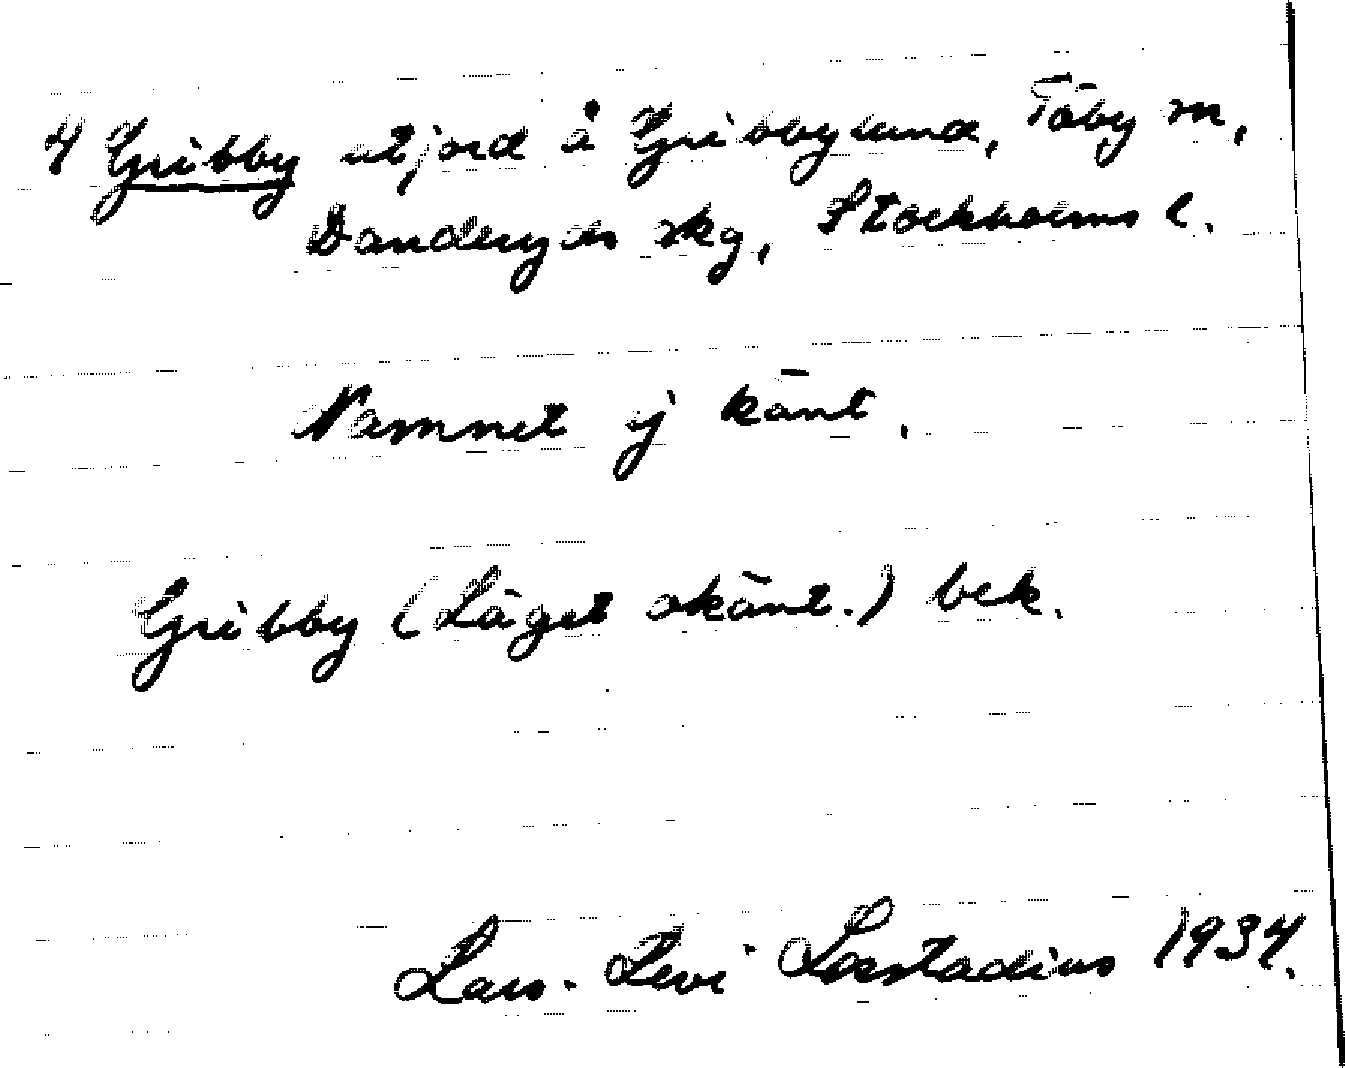 4 Gribby utjord å Gribbylund, Täby sn,
Danderyds skg, Stockholms l.
Namnet ej känt.
Gribby (Läget okänt.) bek.
Lars-Levi Læstadius 1934.